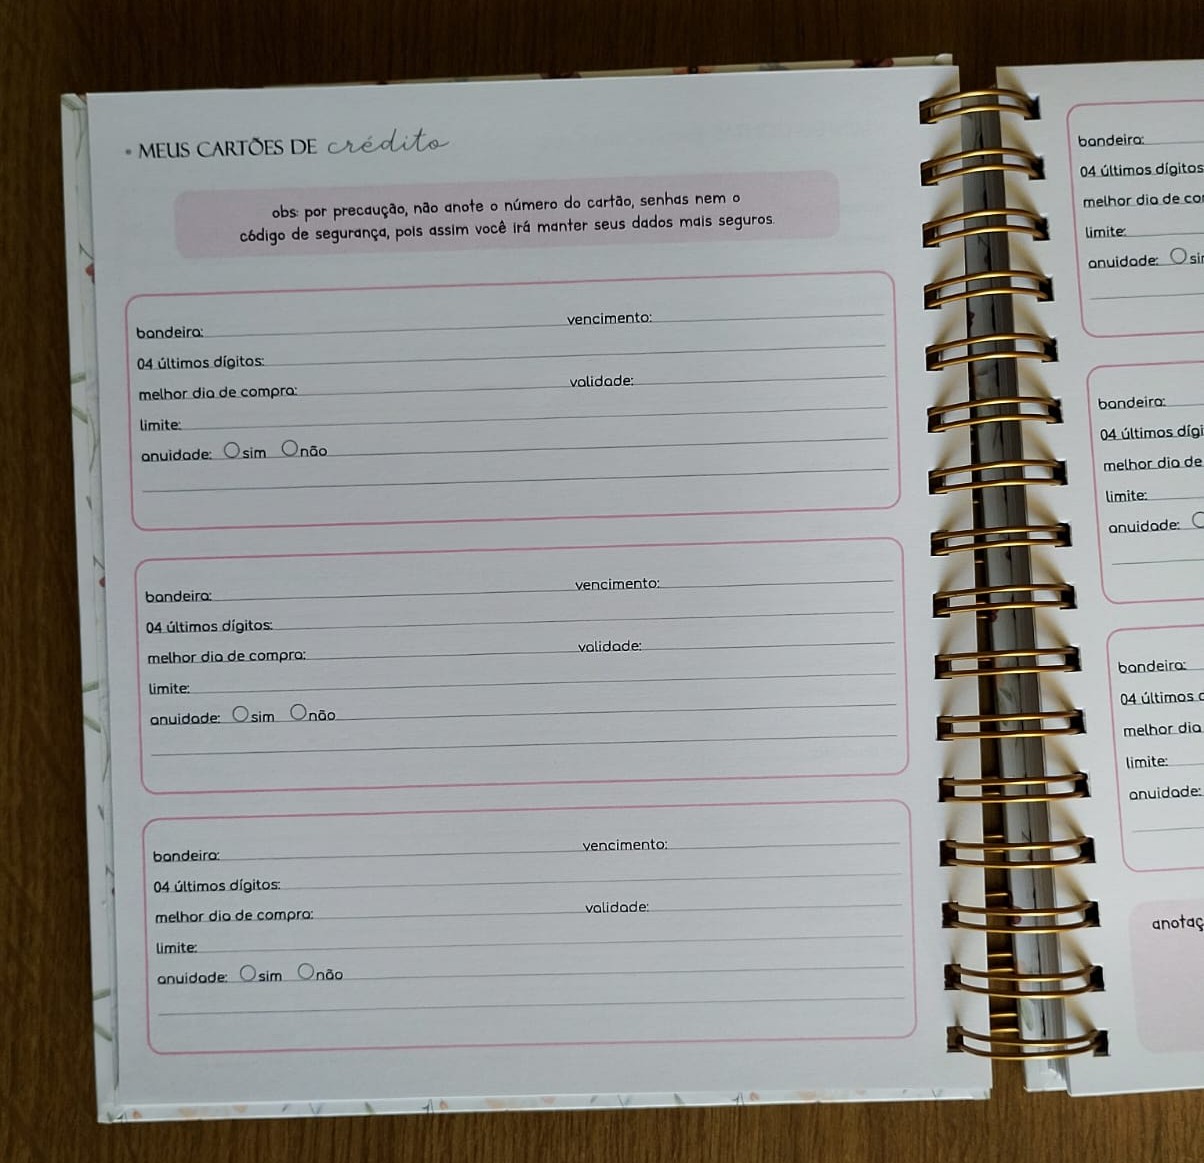 MEUS CARTÕES DE crédito
obs: por precaução, não anote o número do cartão, senhas nem o
código de segurança, pois assim você irá manter seus dados mais seguros.
bandeira: vencimento:
04 últimos dígitos:
melhor dia de compra: validade:
limite:
anuidade: sim não
bandeira: vencimento:
04 últimos dígitos:
melhor dia de compra: validade:
limite:
anuidade: sim não
bandeira: vencimento:
04 últimos dígitos:
melhor dia de compra: validade:
limite:
anuidade: sim não
bandeira:
04 últimos dígitos
melhor dia de
limite:
anuidade:
bandeira:
04 últimos
melhor dia de
limite:
anuidade:
bandeira:
04 últimos
melhor dia
limite:
anuidade: